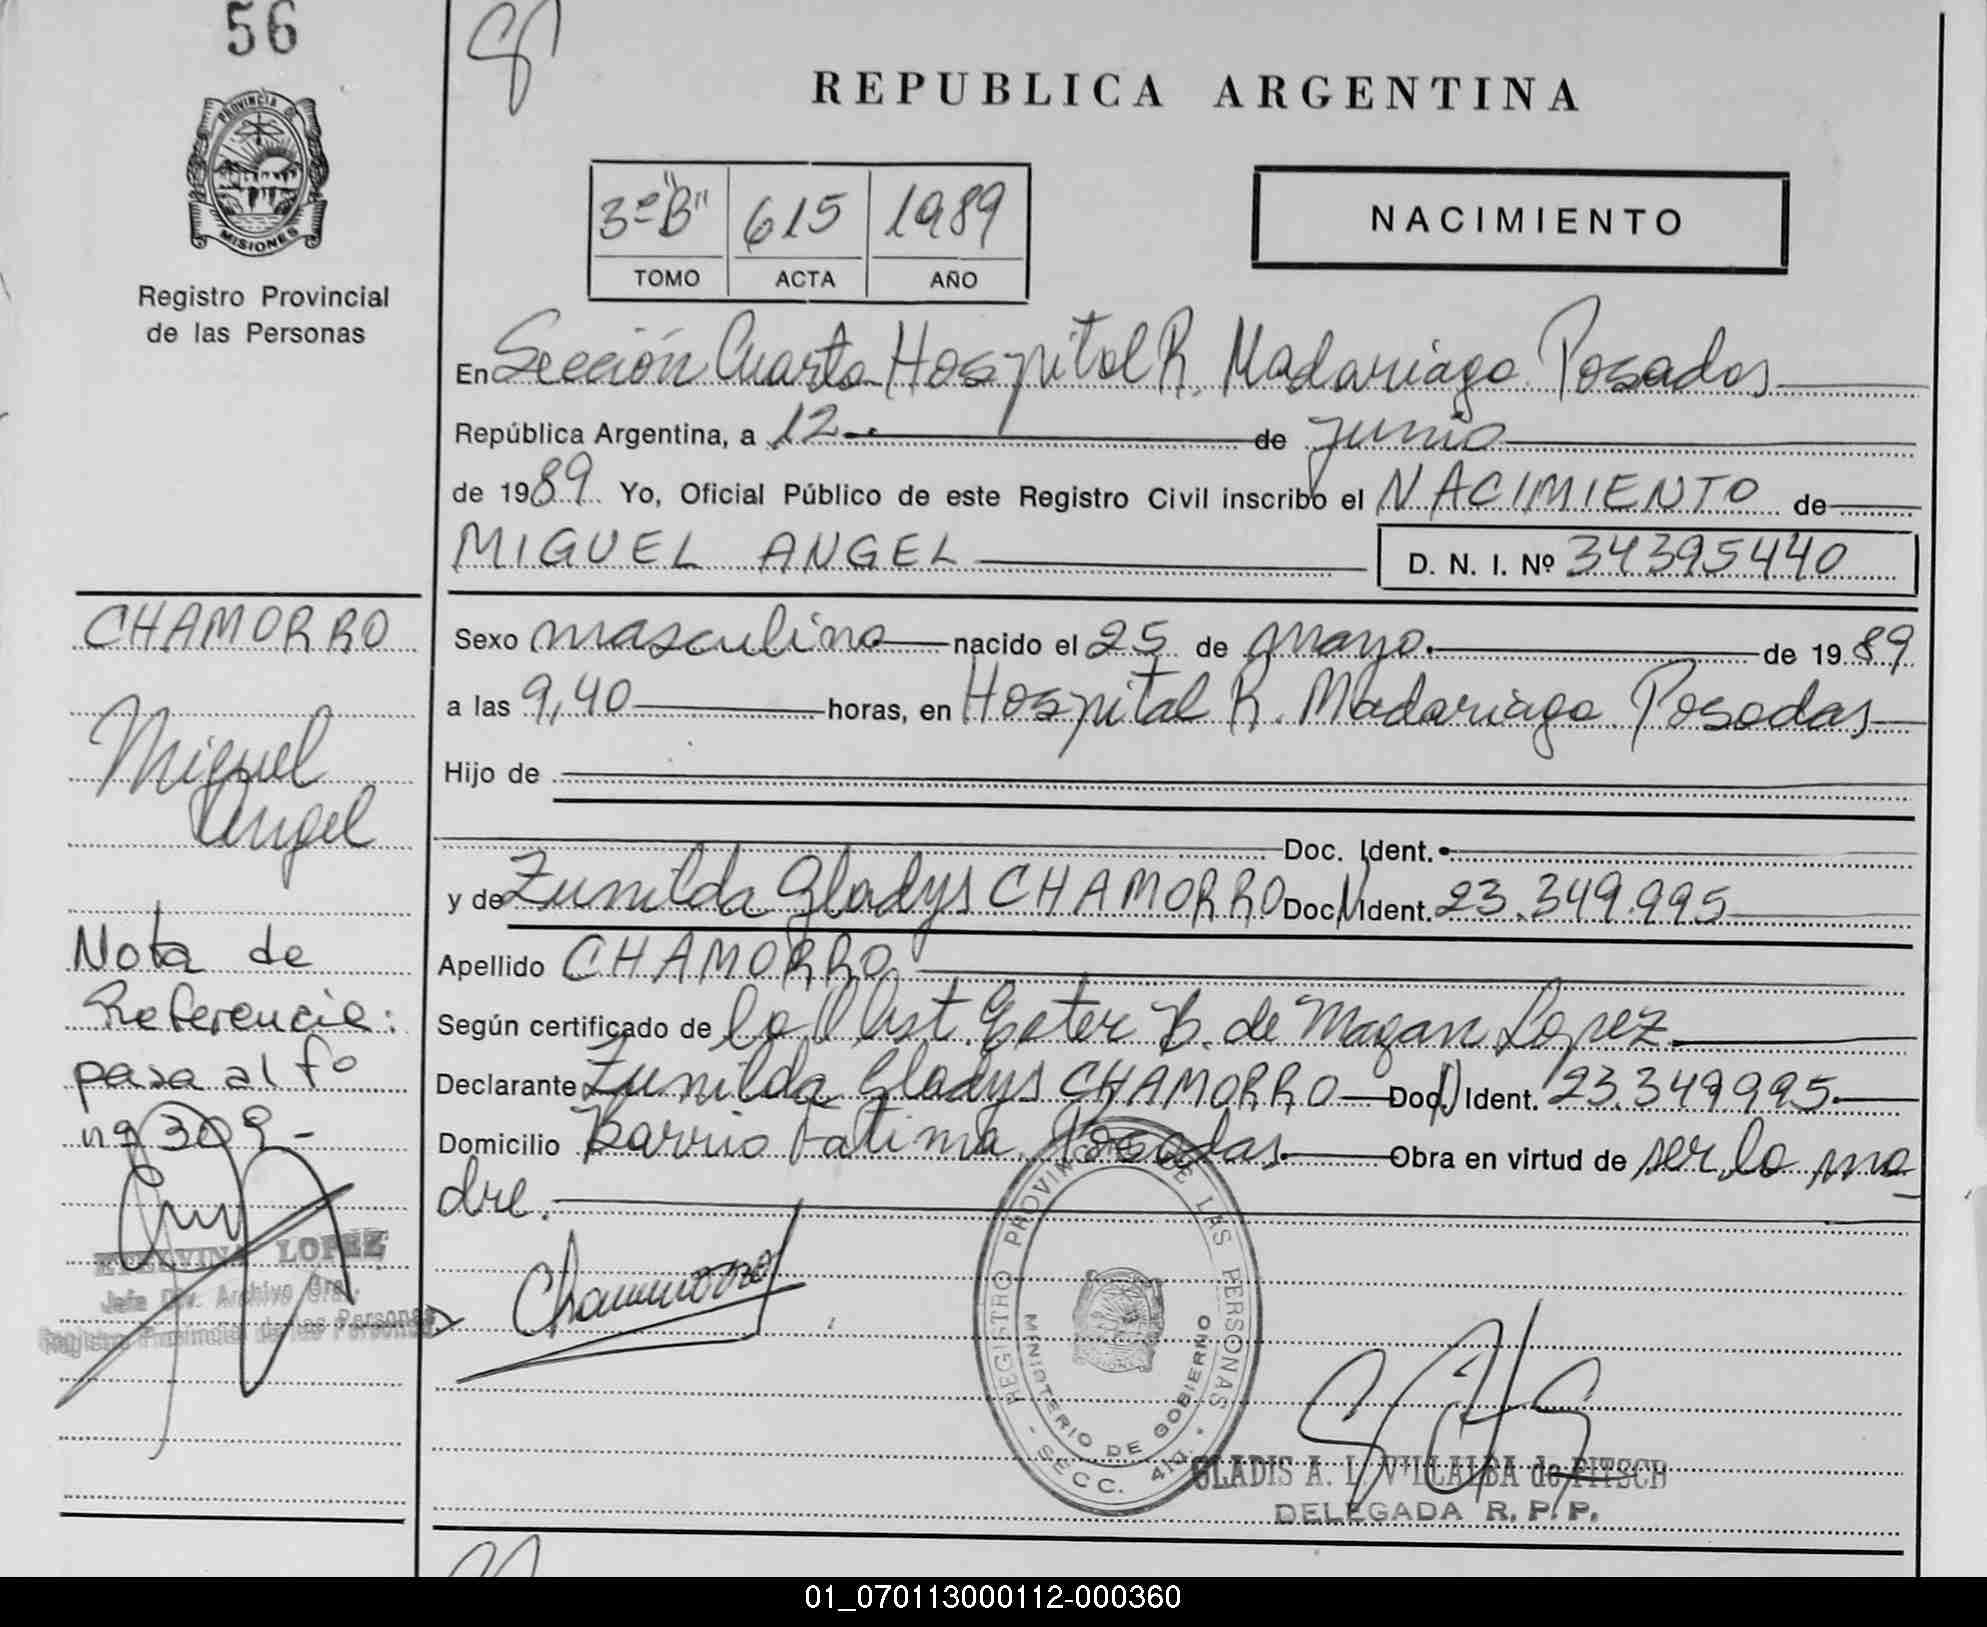 56
REPUBLICA ARGENTINA
PROVINCIA DE
MISIONES
Registro Provincial
de las Personas
3º "B" 615 1989
TOMO ACTA AÑO
NACIMIENTO
En Sección Cuarta Hospital R. Madariaga Posadas
República Argentina, a 12 de junio
de 1989 Yo, Oficial Público de este Registro Civil inscribo el NACIMIENTO de
MIGUEL ANGEL D. N. I. Nº 34395440
CHAMORRO
Miguel
Angel
Sexo masculino nacido el 25 de mayo de 1989
a las 9,40 horas, en Hospital R. Madariaga Posadas
Hijo de
Doc. Ident.
y de Zunilda Gladys CHAMORRO Doc. Ident. 23.349.995
Apellido CHAMORRO
Según certificado de la Obst. Ester B. de Magan Lopez
Declarante Zunilda Gladys CHAMORRO Doc. Ident. 23.349995
Domicilio Barrio Fatima Posadas Obra en virtud de ser la ma
dre.
Nota de
Referencia:
pasa al fº
nº 309-
ETELVINA LOPEZ
Jefe Div. Archivo Gral.
Registro Provincial de las Personas
Chamorro
REGISTRO PROVINCIAL DE LAS PERSONAS
MINISTERIO DE GOBIERNO
- SECC. 4ta. -
GLADIS A. L. VILLALBA de FITSCH
DELEGADA R. P. P.
01_070113000112-000360